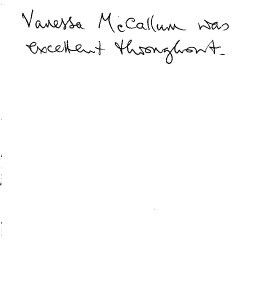 Vanessa McCallum was
excellent throughout.